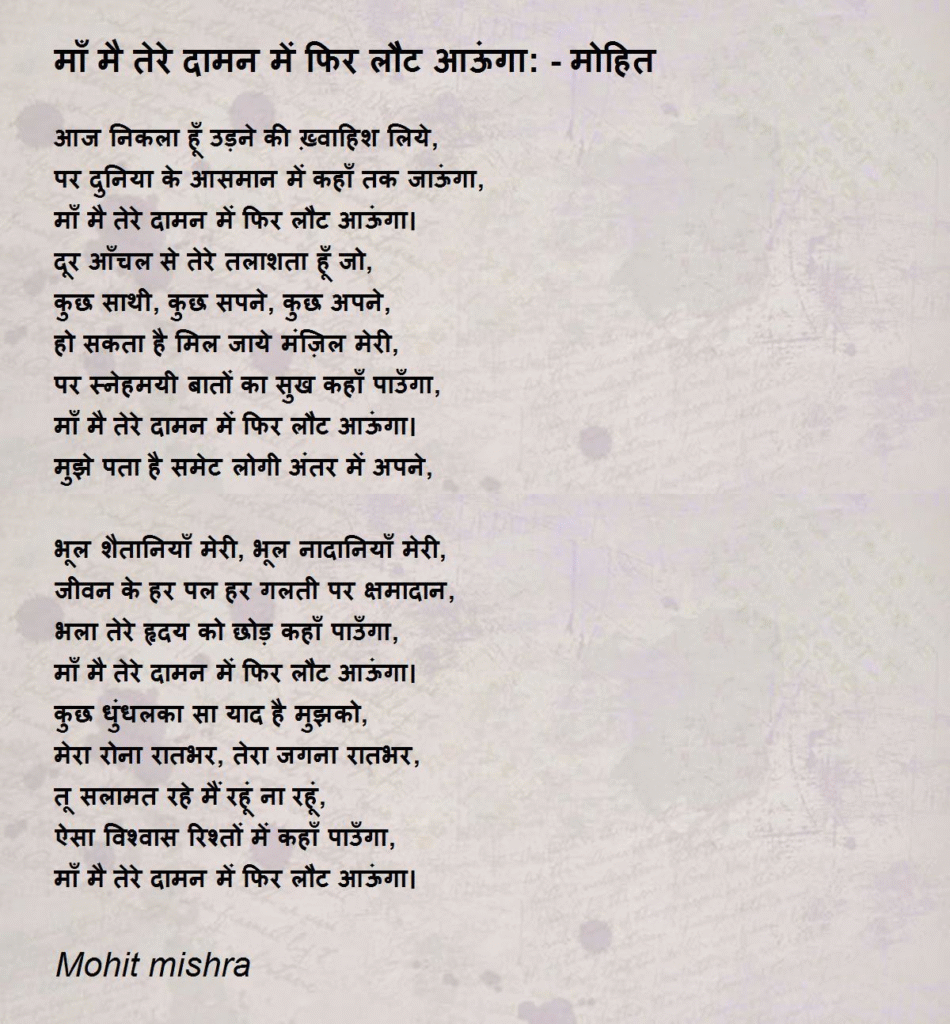 माँ मै तेरे दामन में फिर लौट आऊंगा: - मोहित
आज निकला हूँ उड़ने की ख़्वाहिश लिये,
पर दुनिया के आसमान में कहाँ तक जाऊंगा,
माँ मै तेरे दामन में फिर लौट आऊंगा।
दूर आँचल से तेरे तलाशता हूँ जो,
कुछ साथी, कुछ सपने, कुछ अपने,
हो सकता है मिल जाये मंज़िल मेरी,
पर स्नेहमयी बातों का सुख कहाँ पाउँगा,
माँ मै तेरे दामन में फिर लौट आऊंगा।
मुझे पता है समेट लोगी अंतर में अपने,
भूल शैतानियाँ मेरी, भूल नादानियाँ मेरी,
जीवन के हर पल हर गलती पर क्षमादान,
भला तेरे हृदय को छोड़ कहाँ पाउँगा,
माँ मै तेरे दामन में फिर लौट आऊंगा।
कुछ धुंधलका सा याद है मुझको,
मेरा रोना रातभर, तेरा जगना रातभर,
तू सलामत रहे मैं रहूं ना रहूं,
ऐसा विश्वास रिश्तों में कहाँ पाउँगा,
माँ मै तेरे दामन में फिर लौट आऊंगा।
Mohit mishra